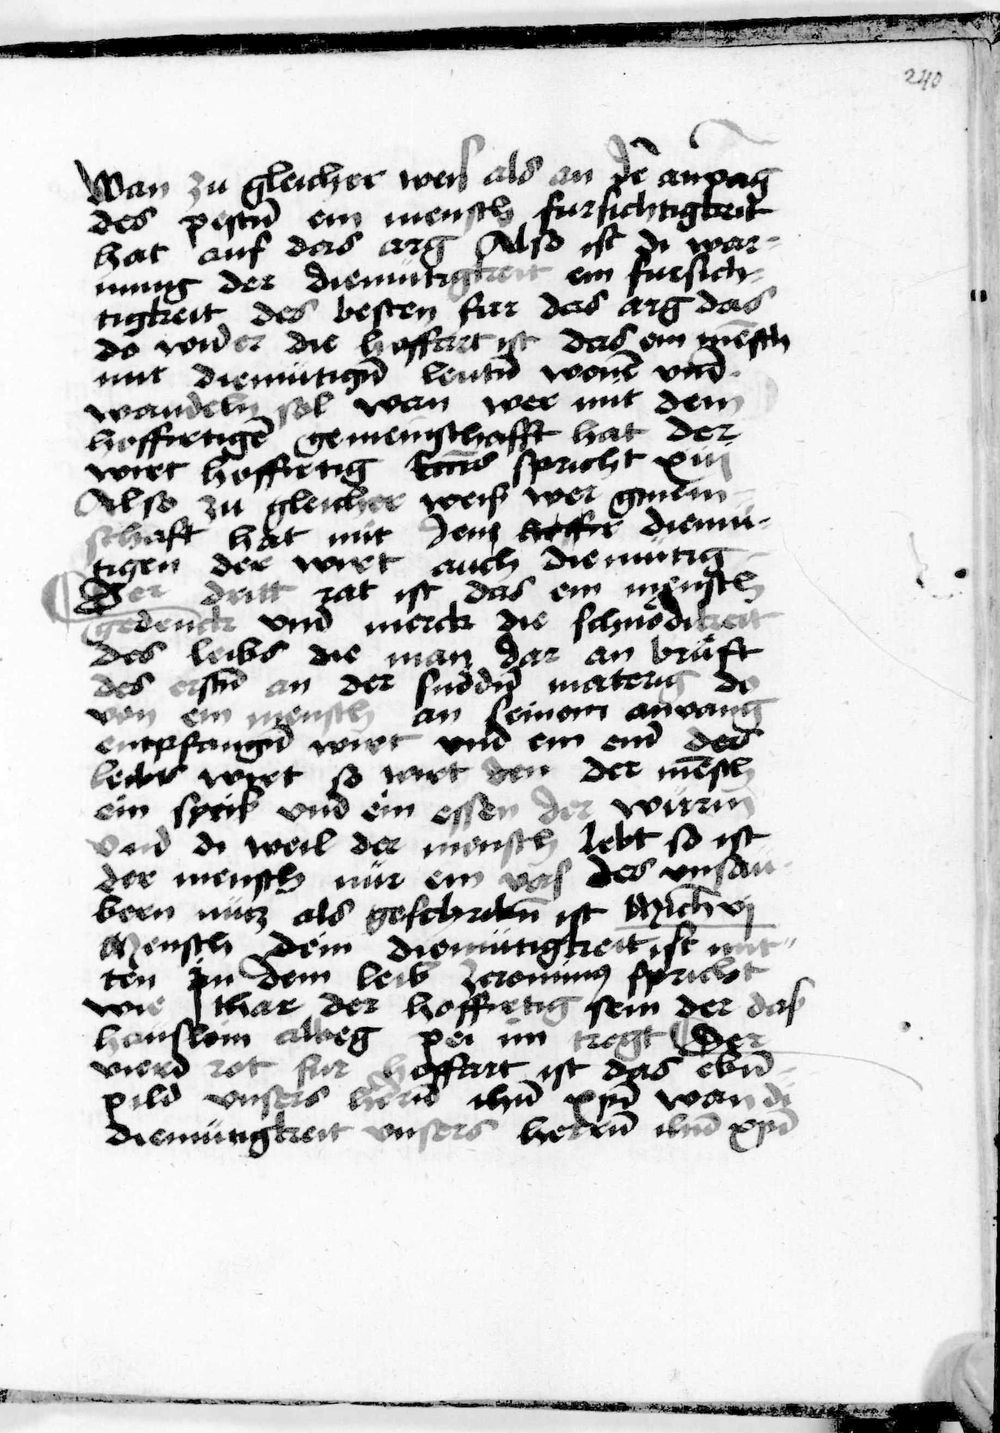 240
Wan zu gleicher weiß als an dē anvag
des pestn̄ ein mensch fursichtigkeit
hat auf das arg Also ist di war-
nung der diemutigkeit ein fursich-
tigkeit des besten fur das arg das
do wider die hoffart ist das ein mēsch
mit diemütign̄ leutn̄ wonē vnd
wandeln sol wan wer mit dem
hoffirtigē gemeinschafft hat der
wirt hoffirtig spricht xiij
Also zu gleicher weiß wer gmein-
schaft hat mit dem hoffir diemü-
tigen der wirt auch diemütig
Der dritt rat ist das ein mensch
gedenck vnd merck die schnödikeit
des leibs die man dar an brüft
des erstn̄ an der materig do
von ein mensch an seinem anvang
entpfangn̄ wirt vnd ein end des
leibs wirt so wirt den der mēsch
ein speiß vnd ein essen der würm
vnd di weil der mensch lebt so ist
der mensch nür ein vas des vnsau-
bern nütz als geschribn̄ ist Mich vj
Mensch dein diemütigkeit ist mit-
ten jn dem leib Jeronimus spricht
wie thar der hoffirtig sein der das
heuslein alweg pei im tregt Der
vierd rot fur hoffart ist das ebn̄-
pild vnsers hern̄ ihū xpī wan di
diemütigkeit vnsers herrn̄ ihū xpī